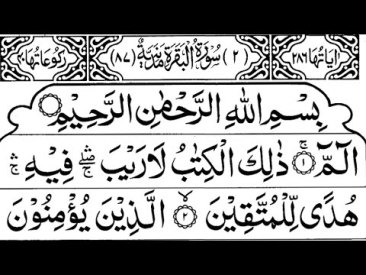 اٰیَاتُهَا ٢٨٦ (٢) سُوْرَةُ الْبَقَرَةِ مَدَنِیَّةٌ (٨٧) رُكُوْعَاتُهَا ٤٠
بِسْمِ اللّٰهِ الرَّحْمٰنِ الرَّحِیْمِ
الٓمّٓ ۚ ۝١ ذٰلِكَ الْكِتٰبُ لَا رَیْبَ ۛۖ فِیْهِ ۛۚ
هُدًی لِّلْمُتَّقِیْنَ ۙ ۝٢ الَّذِیْنَ یُؤْمِنُوْنَ